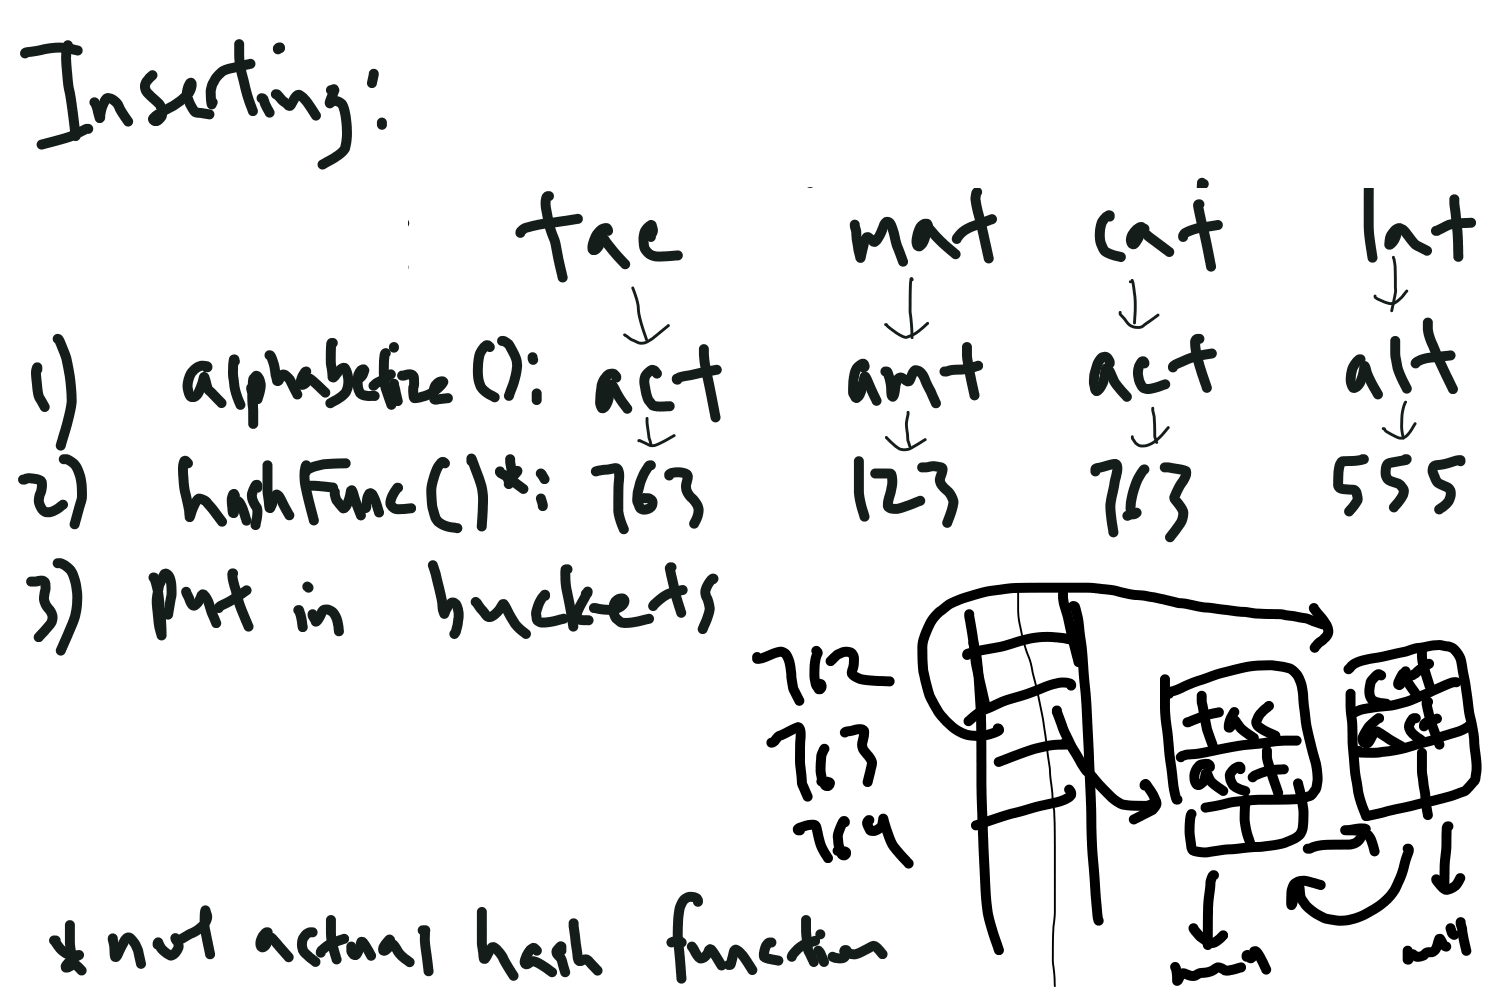 Inserting:
tac mat cat lat
1) alphabetize(): act amt act alt
2) hashFunc()*: 763 123 763 555
3) put in buckets
762
763
764
tac
act
cat
act
null
null
* not actual hash function